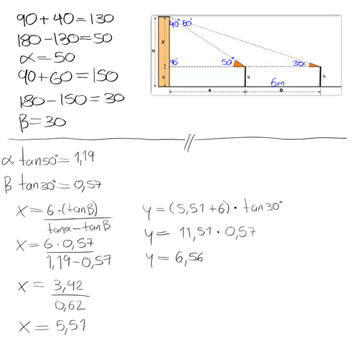 90+40=130
180-130=50
α=50
90+60=150
180-150=30
β=30
40° 60°
H
y
90°
50°
30°
h
h
h
6m
x
D
α tan50°=1,19
β tan30°=0,57
x=6·(tanβ)
tanα-tanβ
x=6·0,57
1,19-0,57
x=3,42
0,62
x=5,51
y=(5,51+6)·tan30°
y=11,51·0,57
y=6,56